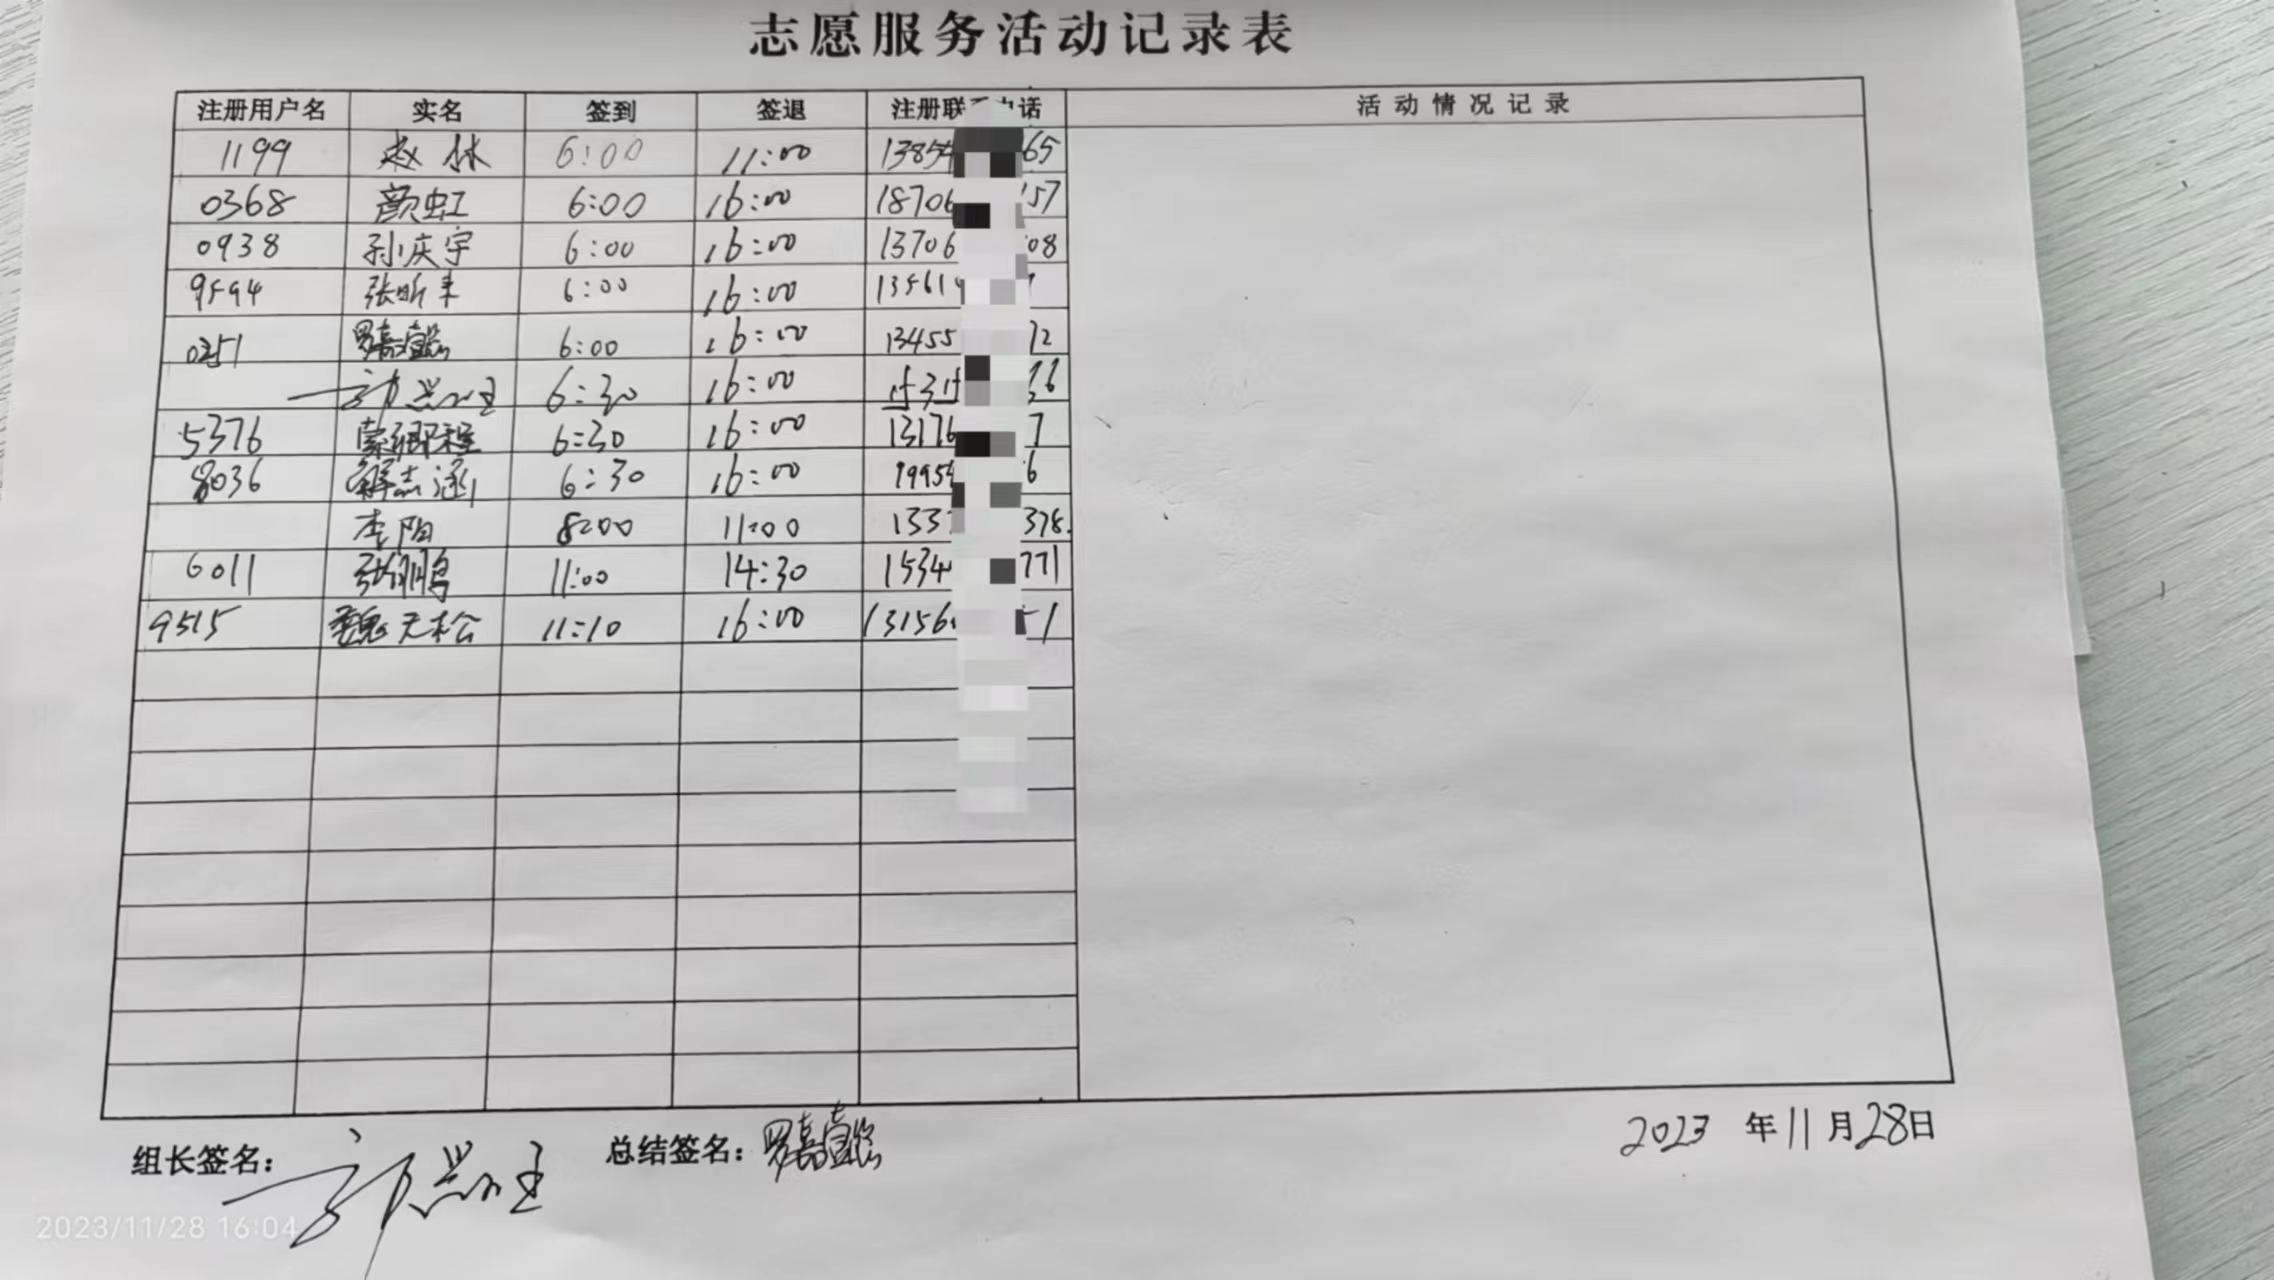 志愿服务活动记录表
注册用户名 实名 签到 签退 注册联 话 活动情况记录
1199 赵林 6:00 11:00 13854 65
0368 颜虹 6:00 16:00 18706 157
0938 孙庆宇 6:00 16:00 13706 08
9594 张昕丰 6:00 16:00 13561
0251 罗嘉懿 6:00 16:00 13455 72
6:30 16:00 16
5376 6:30 16:00 13176 7
8036 解志涵 6:30 16:00 1995 6
李阳 8:00 11:00 133 378.
6011 张鹏 11:00 14:30 1534 771
9515 魏天松 11:10 16:00 13156 1
组长签名: 总结签名: 罗嘉懿 2023 年 11 月 28 日
2023/11/28 16:04